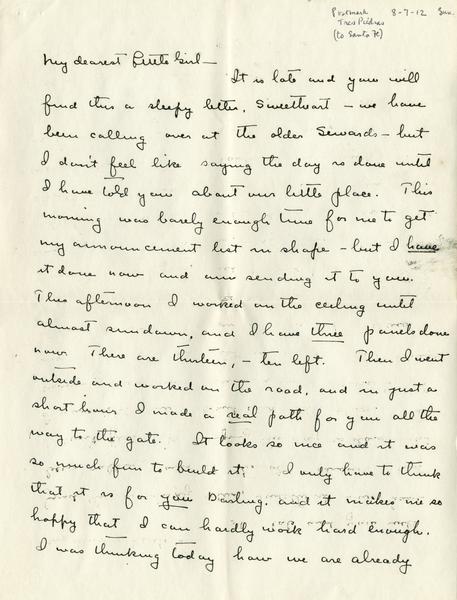 Postmark 8-7-12 Sun.
Tres Piedras
(to Santa Fe)
My dearest Little Girl —
It is late and you will
find this a sleepy letter, Sweetheart — we have
been calling over at the older Sewards — but
I don't feel like saying the day is done until
I have told you about our little place. This
morning was barely enough time for me to get
my announcement list in shape — but I have
it done now and am sending it to you.
This afternoon I worked on the ceiling until
almost sundown, and I have three panels done
now. There are thirteen, — ten left. Then I went
outside and worked on the road, and in just a
short hour I made a real path for you all the
way to the gate. It looks so nice and it was
so much fun to build it. I only have to think
that it is for you Darling, and it makes me so
happy that I can hardly work hard enough.
I was thinking today how we are already